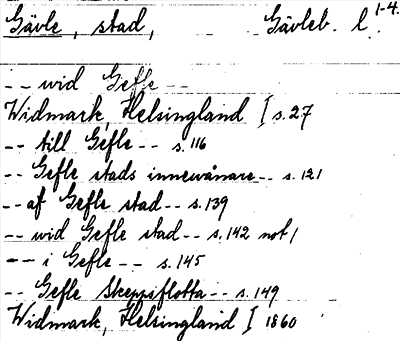 Gävle, stad, Gävleb. l. 1-4.
-- wid Gefle --
Widmark, Helsingland I s. 27
-- till Gefle -- s. 116
-- Gefle stads innewånare -- s. 121
-- af Gefle stad -- s. 139
-- wid Gefle stad -- s. 142 not 1
-- i Gefle -- s. 145
-- Gefle Skeppsflotta -- s. 149
Widmark, Helsingland I 1860